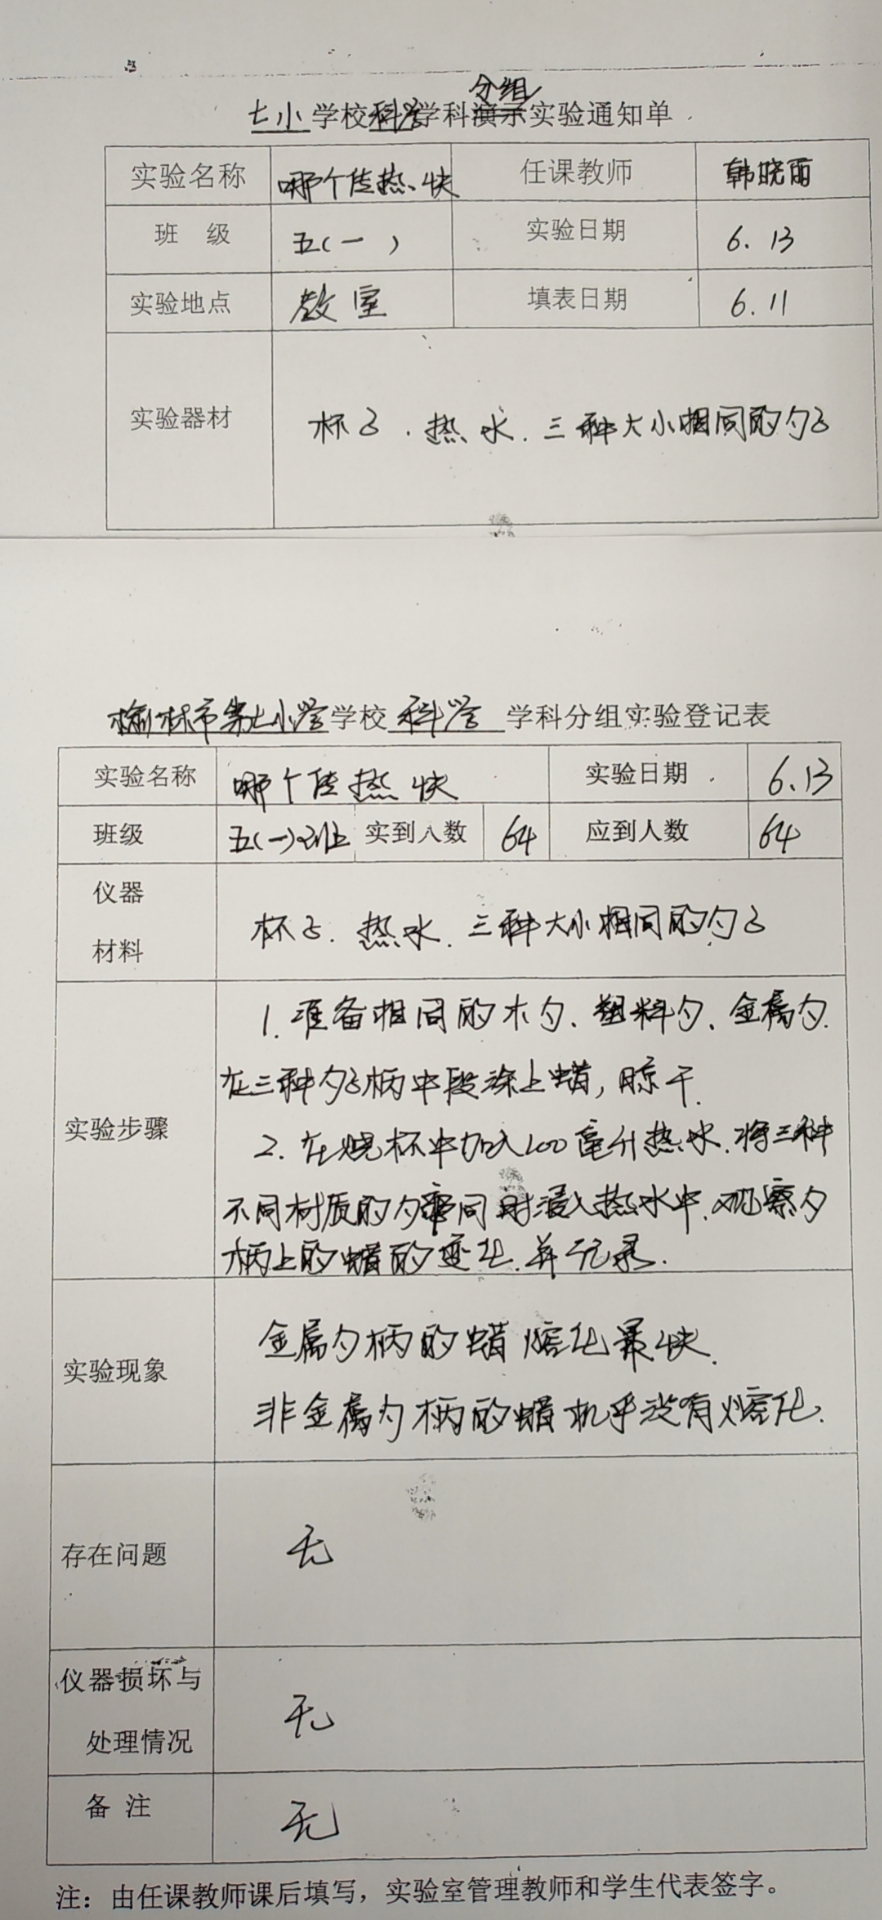 七小学校科学学科分组实验通知单
实验名称 哪个传热快 任课教师 韩晓雨
班 级 五(一) 实验日期 6.13
实验地点 教室 填表日期 6.11
实验器材 杯子.热水.三种大小相同的勺子
榆林市第七小学学校科学学科分组实验登记表
实验名称 哪个传热快 实验日期 6.13
班级 五(一)班 实到人数 64 应到人数 64
仪器
材料
杯子.热水.三种大小相同的勺子
实验步骤
1.准备相同的木勺、塑料勺、金属勺.
在三种勺子柄中段涂上蜡,晾干.
2.在烧杯中加入100毫升热水.将三种
不同材质的勺同时浸入热水中.观察勺
柄上的蜡的变化.并记录.
实验现象
金属勺柄的蜡熔化最快.
非金属勺柄的蜡机乎没有熔化.
存在问题 无
仪器损坏与
处理情况
无
备 注 无
注：由任课教师课后填写，实验室管理教师和学生代表签字。